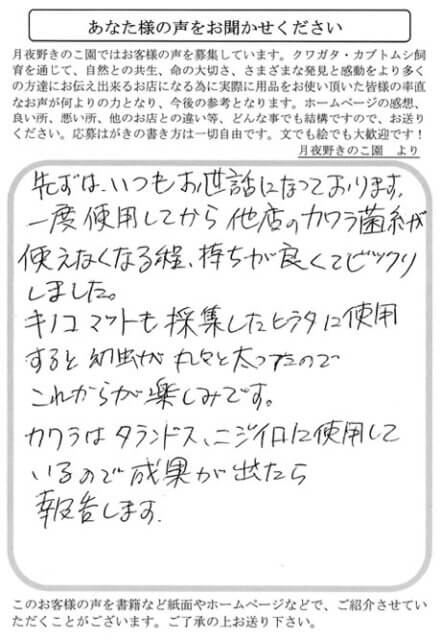 あなた様の声をお聞かせください
月夜野きのこ園ではお客様の声を募集しています。クワガタ・カブトムシ飼
育を通じて、自然との共生、命の大切さ、さまざまな発見と感動をより多く
の方達にお伝え出来るお店になる為に実際に用品をお使い頂いた皆様の率直
なお声が何よりの力となり、今後の参考となります。ホームページの感想、
良い所、悪い所、他のお店との違い等、どんな事でも結構ですので、お送り
ください。応募はがきの書き方は一切自由です。文でも絵でも大歓迎です！
月夜野きのこ園　より
先ずは、いつもお世話になっております。
一度使用してから他店のカワラ菌糸が
使えなくなる程、持ちが良くてビックリ
しました。
キノコマットも採集したヒラタに使用
すると幼虫が丸々と太ったので
これからが楽しみです。
カワラはタランドス、ニジイロに使用して
いるので成果が出たら
報告します。
このお客様の声を書籍など紙面やホームページなどで、ご紹介させてい
ただくことがございます。ご了承の上お送り下さい。